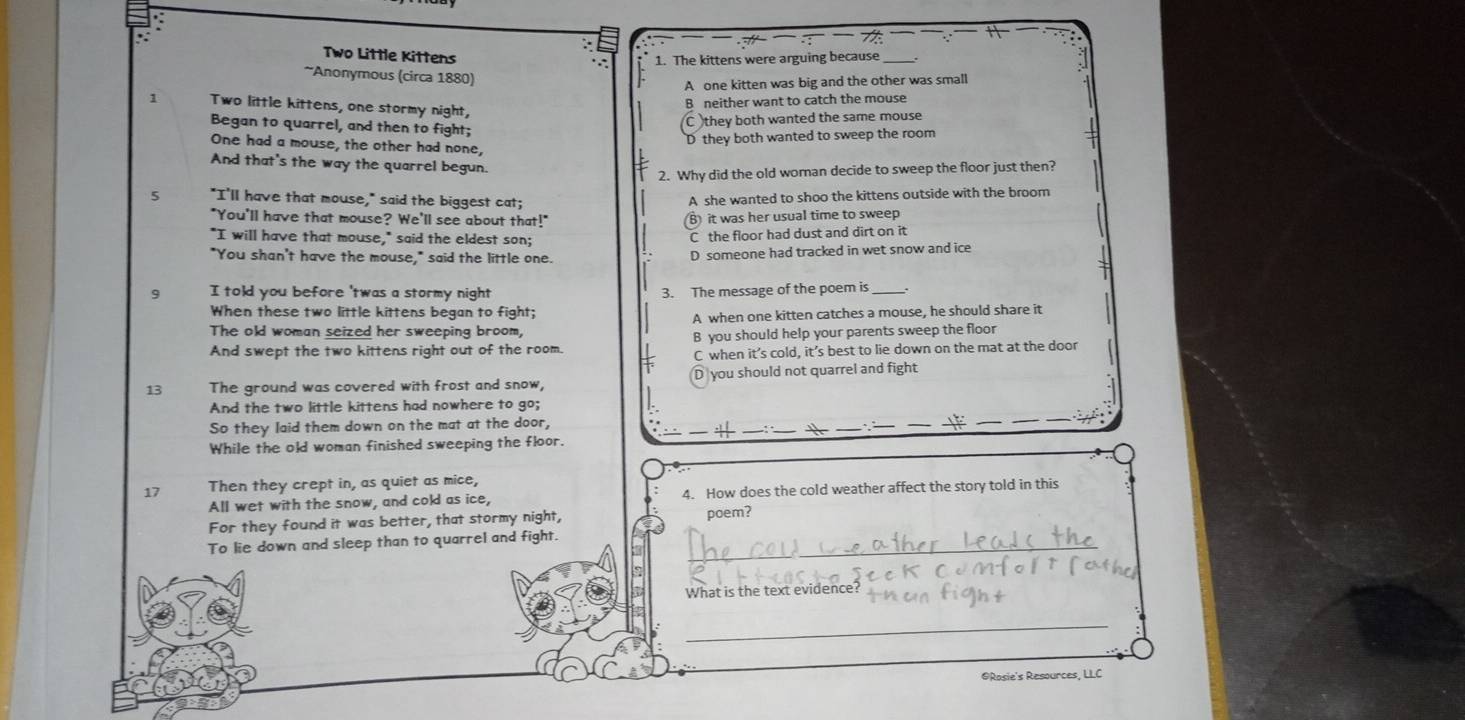 Two Little Kittens
~Anonymous (circa 1880)
1 Two little kittens, one stormy night,
Began to quarrel, and then to fight;
One had a mouse, the other had none,
And that's the way the quarrel begun.
5 "I'll have that mouse," said the biggest cat;
"You'll have that mouse? We'll see about that!"
"I will have that mouse," said the eldest son;
"You shan't have the mouse," said the little one.
9 I told you before 'twas a stormy night
When these two little kittens began to fight;
The old woman seized her sweeping broom,
And swept the two kittens right out of the room.
13 The ground was covered with frost and snow,
And the two little kittens had nowhere to go;
So they laid them down on the mat at the door,
While the old woman finished sweeping the floor.
17 Then they crept in, as quiet as mice,
All wet with the snow, and cold as ice,
For they found it was better, that stormy night,
To lie down and sleep than to quarrel and fight.
1. The kittens were arguing because _____.
A one kitten was big and the other was small
B neither want to catch the mouse
C they both wanted the same mouse
D they both wanted to sweep the room
2. Why did the old woman decide to sweep the floor just then?
A she wanted to shoo the kittens outside with the broom
B it was her usual time to sweep
C the floor had dust and dirt on it
D someone had tracked in wet snow and ice
3. The message of the poem is _____.
A when one kitten catches a mouse, he should share it
B you should help your parents sweep the floor
C when it's cold, it's best to lie down on the mat at the door
D you should not quarrel and fight
4. How does the cold weather affect the story told in this
poem?
The cold weather leads the
kittens to seek comfort rather
What is the text evidence? than fight
©Rosie's Resources, LLC